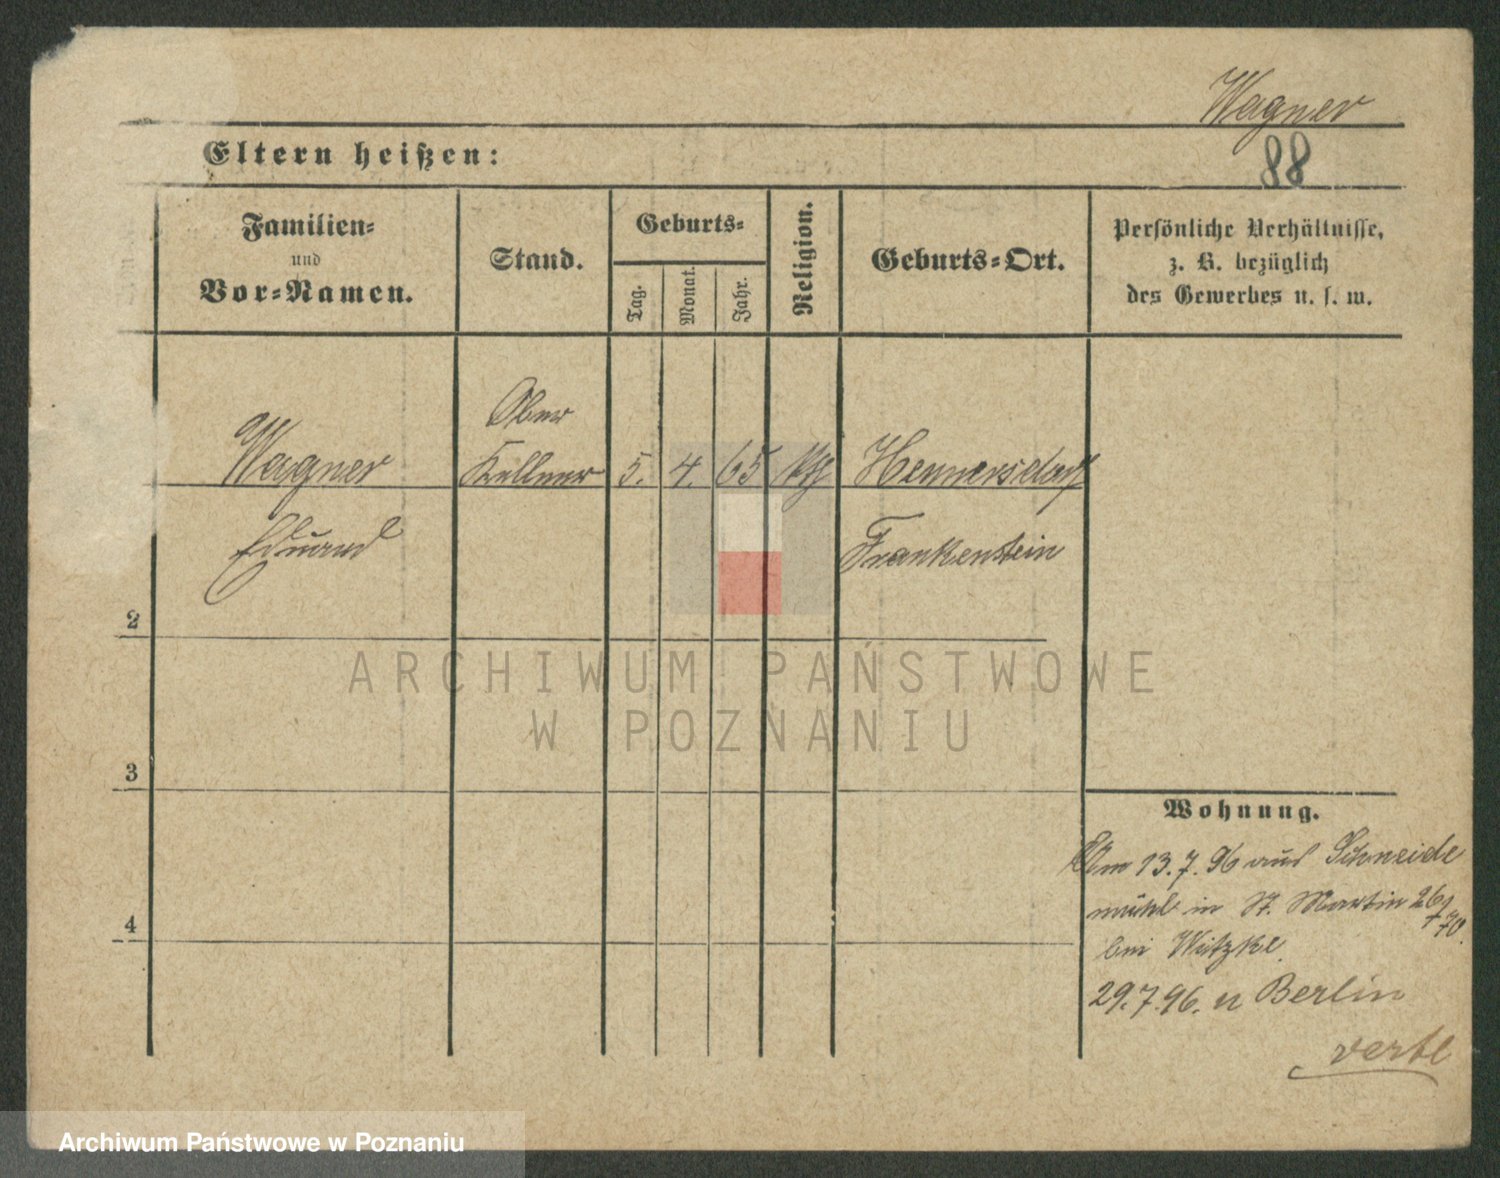 Wagner
88
Eltern heißen:
Familien-
und
Vor-Namen.
Stand.
Geburts-
Tag.
Monat.
Jahr.
Religion.
Geburts-Ort.
Persönliche Verhältnisse,
z. B. bezüglich
des Gewerbes u. s. w.
Ober
Wagner Kellner 5. 4. 65 Hennersdorf
Eduard Frankenstein
2
3
4
Wohnung.
Am 13.7.96 aus Schneide
mühl in St. Martin 26/
bei Witzke.
29.7.96. n Berlin
ARCHIWUM PAŃSTWOWE
W POZNANIU
Archiwum Państwowe w Poznaniu